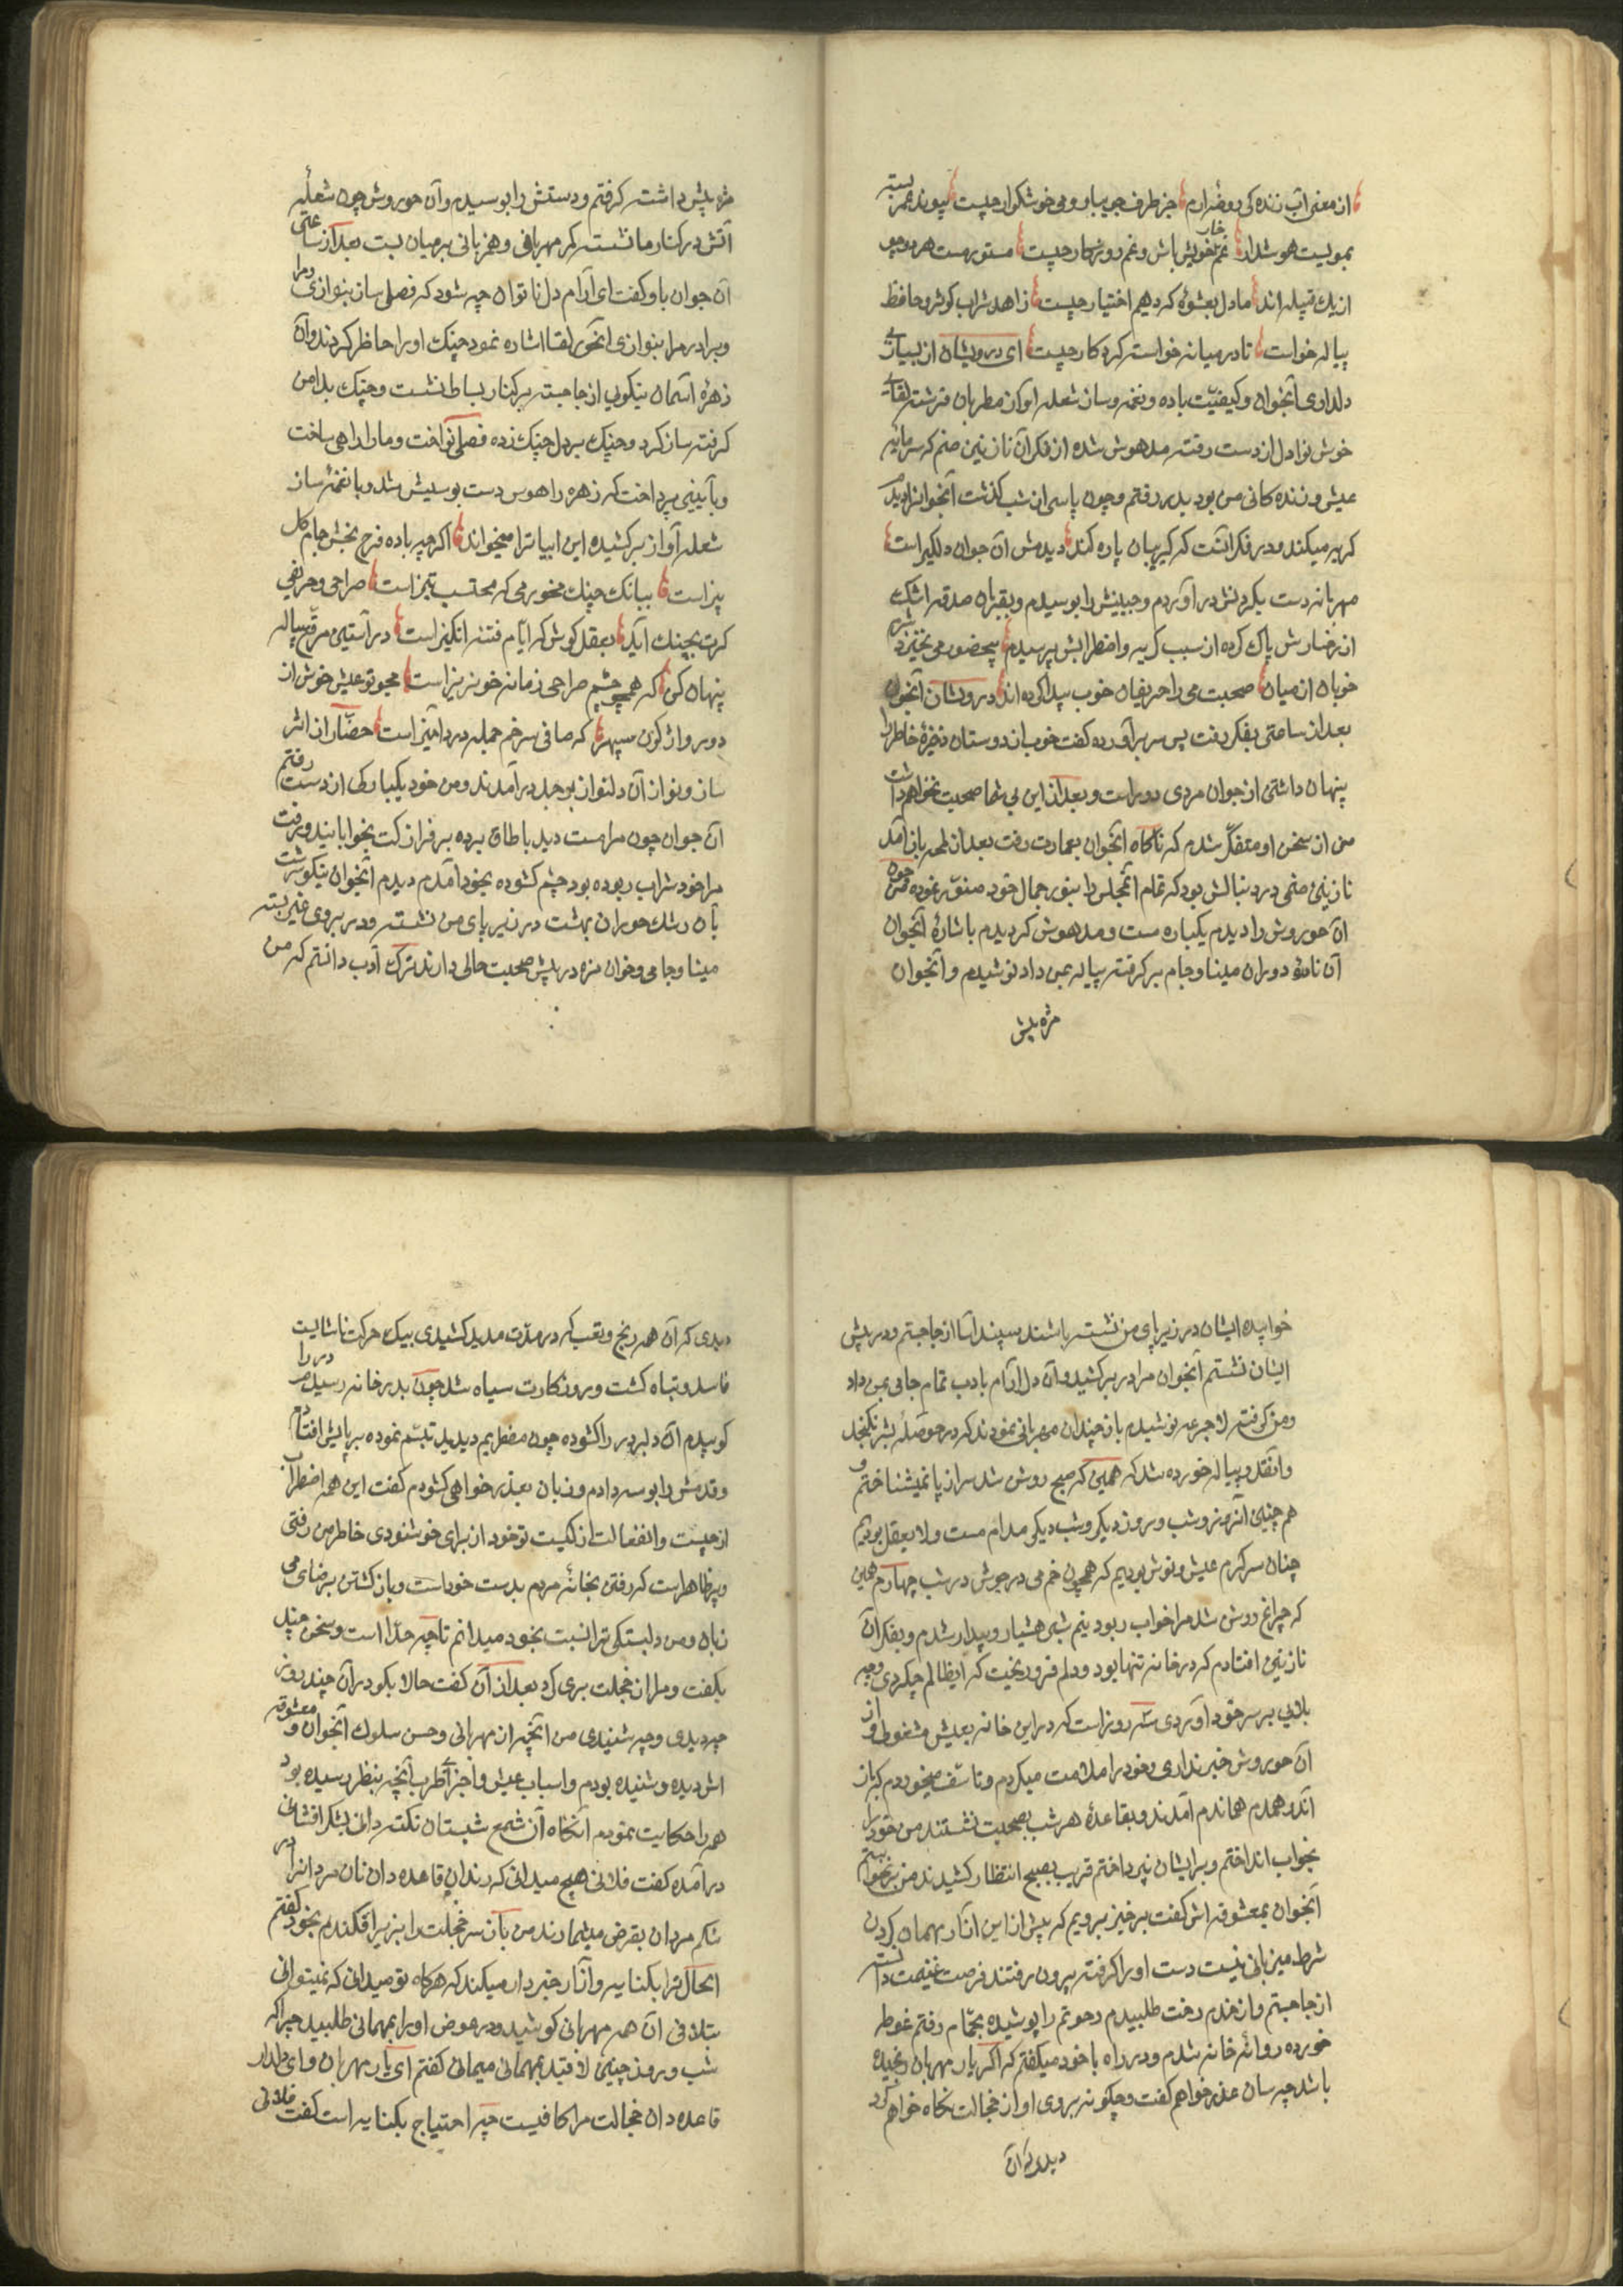 از معنی آب زنده کی و روضهٔ ارم جز طرف جویبار و می خوشگوار چیست پیوند عمر بسته
بمویست هوشدار غمخوار خویش باش و غم روزگار چیست مستور و مست هر دو چو
از یک قبیله اند ما دل بعشوهٔ که دهیم اختیار چیست زاهد شراب کوثر و حافظ
پیاله خواست تا در میانه خواسته کردکار چیست ای درویشان از بسیاری
دلداری آنجوان و کیفیّت باده و نغمه و ساز شعله آواز مطربان فرشته لقای
خوش نوا دل از دست رفته مدهوش شده از فکر آن نازنین صنم که سرمایه
عیش و زنده کانی من بود بدر رفتم و چون پاسی از شب گذشت آنجوانرا دیدم
گریه میکند و در فکر آنست که گریبان پاره کند دیدمش آن جوان دلگیر است
مهربانه دست بگردنش در آوردم و جبینش را بوسیدم و بقربان صدقه اشک
از رخسارش پاک کرده از سبب گریه و اضطرابش پرسیدم بیحضور می نخیزد شره
خوبان از میان صحبت می را حریفان خوب پیدا کرده اند درویشان آنجوان
بعد از ساعتی بفکر رفت پس سر برآورده گفت خوب از دوستان ذخیرهٔ خاطر را
پنهان داشتن از جوان مردی دور است و بعد از این بی شما صحبت نخواهم داشت
من از سخن او متفکّر شدم که ناگاه آنجوان بعمارت رفت بعد از لمحه بازآمد
نازنین صنمی در دنبالش بود که تمام آنمجلس را بنور جمال خود منوّر نموده من چون
آن حوروش را دیدم یکباره مست و مدهوش گردیدم باشارهٔ آنجوان
آن نادرهٔ دوران مینا و جام برگرفته پیاله بمن داد نوشیدم و آنجوان
مزه پیش
مزه پیش داشته گرفتم و دستش را بوسیدم و آن حوروش چون شعلهٔ
آتش در کنار ما نشسته کمر مهربانی و همزبانی برمیان بست بعد از ساعتی
آن جوان باو گفت ای آرام دل ناتوان چه شود که فصلی ساز بنوازی و مرا
و برادر مرا بنوازی آنحور لقا اشاره نمود چنک او را حاظر کردند و آن
زهرهٔ آسمان نیکویی از جا جسته برکنار بساط نشست و چنک بدامن
گرفته ساز کرد و چنک بر دل چنک زده فصلی نواخت و ما را داهی ساخت
و بآیینی پرداخت که زهره را هوس دست بوسیش شد و با نغمه ساز
شعله آواز برکشیده این ابیاترا میخواند اگرچه باده فرح بخش جام کل
بیز است ببانک چنک مخور می که محتسب تیز است صراحی و حریفی
گرت بچنک آید بعقل کوش که ایّام فتنه انگیز است در آستین مرقّع پیاله
پنهان کن که همچو چشم صراحی زمانه خونریز است مجو تو عیش خوش از
دور واژگون سپهر که صافی سر خم جمله درد آمیز است حضّار از اثر
ساز و نواز آن دلنواز بوجد درآمدند و من خود بیکبارکی از دست رفتم
آن جوان چون مرا مست دید باطاق برده بر فراز کت بخوابانید و برفت
مرا خود شراب ربوده بود چشم گشوده بخود آمدم دیدم آنجوان نیکو سرشت
بآن رشک حوران بهشت در زیر پای من نشسته و در بروی غیر بسته
مینا و جامی و خوان مزه در پیش صحبت حالی دارند ترک ادب دانستم که من
خوابیده ایشان در زیر پای من نشسته باشند سپند آسا از جا جستم و در پیش
ایشان نشستم آنجوان مرا در بر کشید و آن دل آرام بادب تمام جامی بمن داد
و من گرفته لاجرعه نوشیدم باز چندان مهربانی نمودند که در حوصلهٔ بشر نگنجد
و آنقدر پیاله خورده شد که همین که صبح روشن شد سر از پا نمیشناختم و
هم چنین آنروز و شب و روز دیگر و شب دیگر مدام مست و لا یعقل بودیم
چنان سرگرم عیش و نوش بودیم که همچون خم می در جوش در شب چهارم همین
که چراغ روشن شد مرا خواب ربود نیم شبی هشیار و بیدار شدم و بفکر آن
نازنین افتادم که در خانه تنها بود و دلم فرو ریخت که ایظالم چکردی و چه
بلایی بر سر خود آوردی سه روز است که در این خانه بعیش مشغولی و از
آن حوروش خبر نداری و خود را ملامت میکردم و تاسّف میخوردم که باز
آندو همدم هماندم آمدند و بقاعدهٔ هر شب بصحبت نشستند من خود را
بخواب انداختم و بایشان نپرداختم قریب بصبح انتظار کشیدند من برنخواستم
آنجوان بمعشوقه اش گفت برخیز برویم که پیش از این آزار مهمان کردن
شرط میزبانی نیست دست او را گرفته بیرون رفتند فرصت غنیمت دانسته
از جا جستم و از خدم رخت طلبیدم رختم را پوشیده بحمّام رفتم غوطه
خورده روانهٔ خانه شدم و در راه با خود میگفتم که اگر یار مهربان رنجیده
باشد چه سان عذر خواهم گفت و چگونه بروی او از خجالت نگاه خواهم کرد
دیدی که آن
دیدی که آن همه رنج و تعب که در مدّت مدید کشیدی بیک حرکت ناشایست
فاسد و تباه گشت و روزگارت سیاه شد چون بدر خانه رسیدم در را
کوبیدم آن دلبر در را گشوده چون مضطربم دید تبسّم نموده بر پایش افتادم
و قدمش را بوسه دادم و زبان بعذر خواهی گشودم گفت این همه اضطراب
از چیست و انفعالت از کیست تو خود از برای خوشنودی خاطر من رفتی
و پر ظاهر است که رفتن بخانهٔ مردم بدست خود است و بازگشتن برضای می
زبان و من دلبستگی ترا نسبت بخود میدانم تا چه حدّ است و سخن چند
بگفت و مرا از خجلت بری کرد بعد از آن گفت حالا بگو در آن چند روز
چه دیدی و چه شنیدی من آنچه از مهربانی و حسن سلوک آنجوان و معشوقه
اش دیده و شنیده بودم و اسباب عیش و اجزای طرب آنچه بنظر رسیده بود
همه را حکایت نمودم آنگاه آن شمع شبستان نکته دانی بشکر افشانی
درآمده گفت فلانی هیچ میدانی که رندان قاعده دان نان مردانرا در
شکم مردان بقرض میشمارند من باز سر خجلت را بزیر افکندم بخود گفتم
ایحال ترا بکنایه و آزار خبردار میکند که هرگاه تو میدانی که نمیتوانی
بتلافی آن همه مهربانی کوشید و در عوض او را بمهمانی طلبید چرا که
شب و روز چنین لاقید بمهمانی میمانی گفتم ای یار مهربان و ای دلدار
قاعده دان خجالت مرا کافیست چه احتیاج بکنایه است گفت فلانی